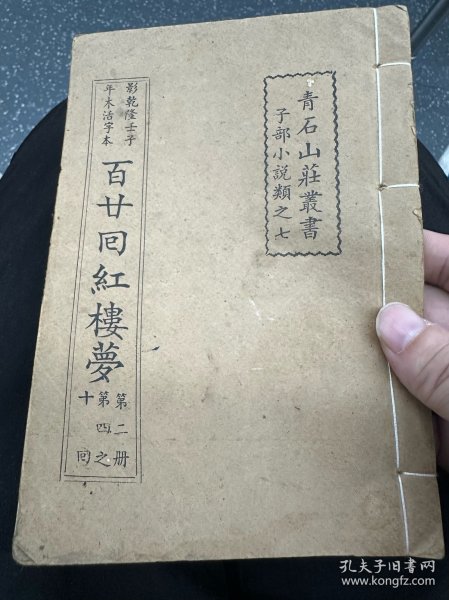 青石山莊叢書
子部小説類之七
影乾隆壬子
年木活字本
百廿回紅樓夢
第二册
第四之
十回
孔夫子旧书网
www.kongfz.com